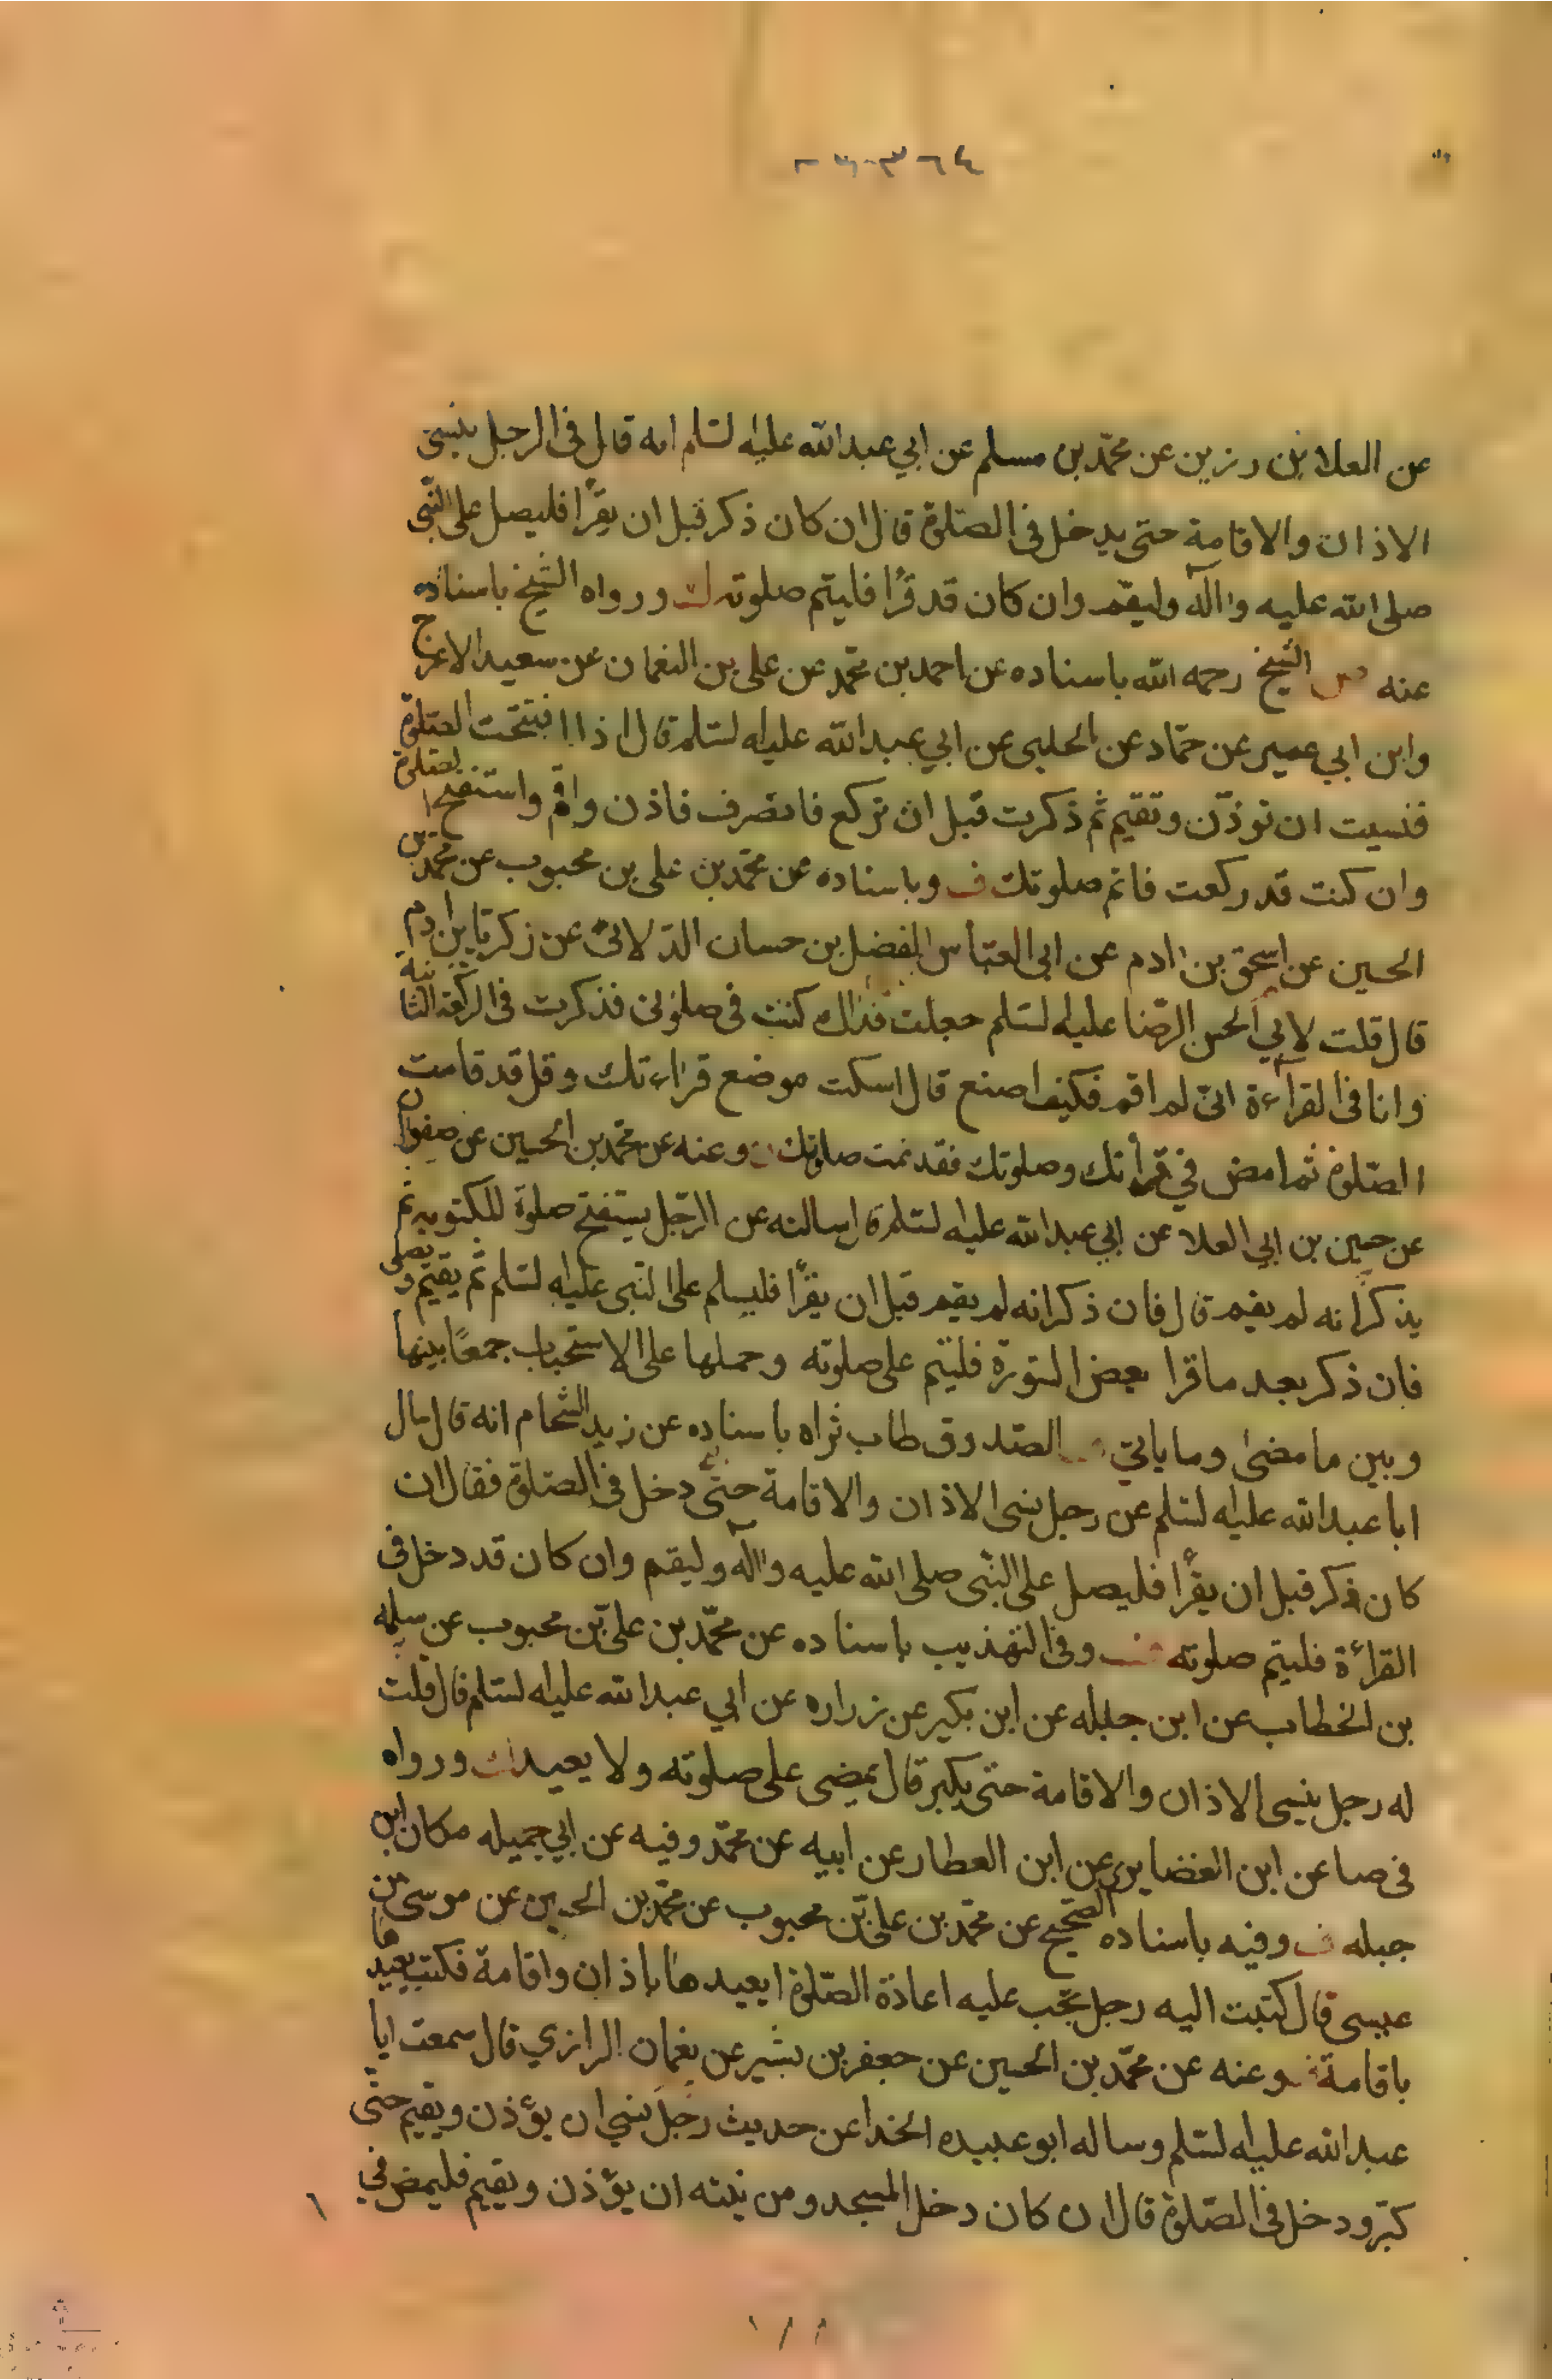 عن العلا بن رزين عن محمّد بن مسلم عن ابي عبدالله عليه لسّلم انه قال فى الرجل ينسى
الاذان والاقامة حتى يدخل فى الصّلوة قال ان كان ذكر قبل ان يقرأ فليصل على النّبى
صلى الله عليه واآله وليقم وان كان قد قرأ فليتم صلوته ورواه الشيخ باسناده
عنه الشيخ رحمه الله باسناده عن احمد بن محمّد عن على بن النعمان عن سعيد الاعرج
وابن ابي عمير عن حمّاد عن الحلبى عن ابي عبدالله عليه لسّلم قال اذا افتتحت الصّلوة
فنسيت ان توذّن وتقيم ثم ذكرت قبل ان تركع فانصرف فاذن واقم واستفتح الصّلوة
وان كنت قد ركعت فاتم صلوتك ف وباسناده عن محمّد بن على بن محبوب عن محمّد بن
الحسين عن اسحق بن ادم عن ابى العبّاس المفضل بن حسان الدّلانىّ عن زكريّا بن ادم
قال قلت لابي الحسن الرضا عليه لسّلم جعلت فداك كنت فى صلوتى فذكرت فى الركعة الثانية
وانا فى القراءة انى لم اقم فكيف اصنع قال اسكت موضع قراءتك وقل قد قامت
الصّلوة ثم امض في قرأتك وصلوتك فقد تمت صلوتك وعنه عن محمّد بن الحسين عن صفوان
عن حسين بن ابي العلا عن ابي عبدالله عليه لسّلم قال سالته عن الرّجل يستفتح صلوة المكتوبه ثم
يذكر انه لم يقم قال فان ذكر انه لم يقم قبل ان يقرأ فليسلم على النّبى عليه لسّلم ثم يقيم ويصلى
فان ذكر بعد ما قرا بعض السّورة فليتم على صلوته وحملها على الاستحباب جمعًا بينها
وبين ما مضىٰ وما ياتي الصّدوق طاب ثراه باسناده عن زيد الشّحام انه قال سال
ابا عبدالله عليه لسّلم عن رجل نسى الاذان والاقامة حتّى دخل فى الصّلوة فقال ان
كان ذكر قبل ان يقرأ فليصل على النّبى صلى الله عليه واآله وليقم وان كان قد دخل فى
القرأة فليتم صلوته وفى التهذيب باسناده عن محمّد بن علىّ بن محبوب عن سلمه
بن الخطاب عن ابن جبله عن ابن بكير عن زراره عن ابي عبدالله عليه لسّلم قال قلت
له رجل ينسى الاذان والاقامة حتى يكبر قال يمضى على صلوته ولا يعيد ورواه
فى صا عن ابن الغضايرى عن ابن العطار عن ابيه عن محمّد وفيه عن ابي جميله مكان ابن
جبله ف وفيه باسناده الصّحيح عن محمّد بن علىّ بن محبوب عن محمّد بن الحسين عن موسى بن
عيسى قال كتبت اليه رجل تجب عليه اعادة الصّلوة ايعيدها باذان واقامة فكتب يعيدها
باقامة وعنه عن محمّد بن الحسين عن جعفر بن بشير عن نعمان الرازي قال سمعت ابا
عبدالله عليه لسّلم وساله ابو عبيده الحذا عن حديث رجل نسي ان يؤذن ويقيم حتّى
كبّر ودخل فى الصّلوة قال ان كان دخل المسجد ومن نيته ان يؤذن ويقيم فليمض في